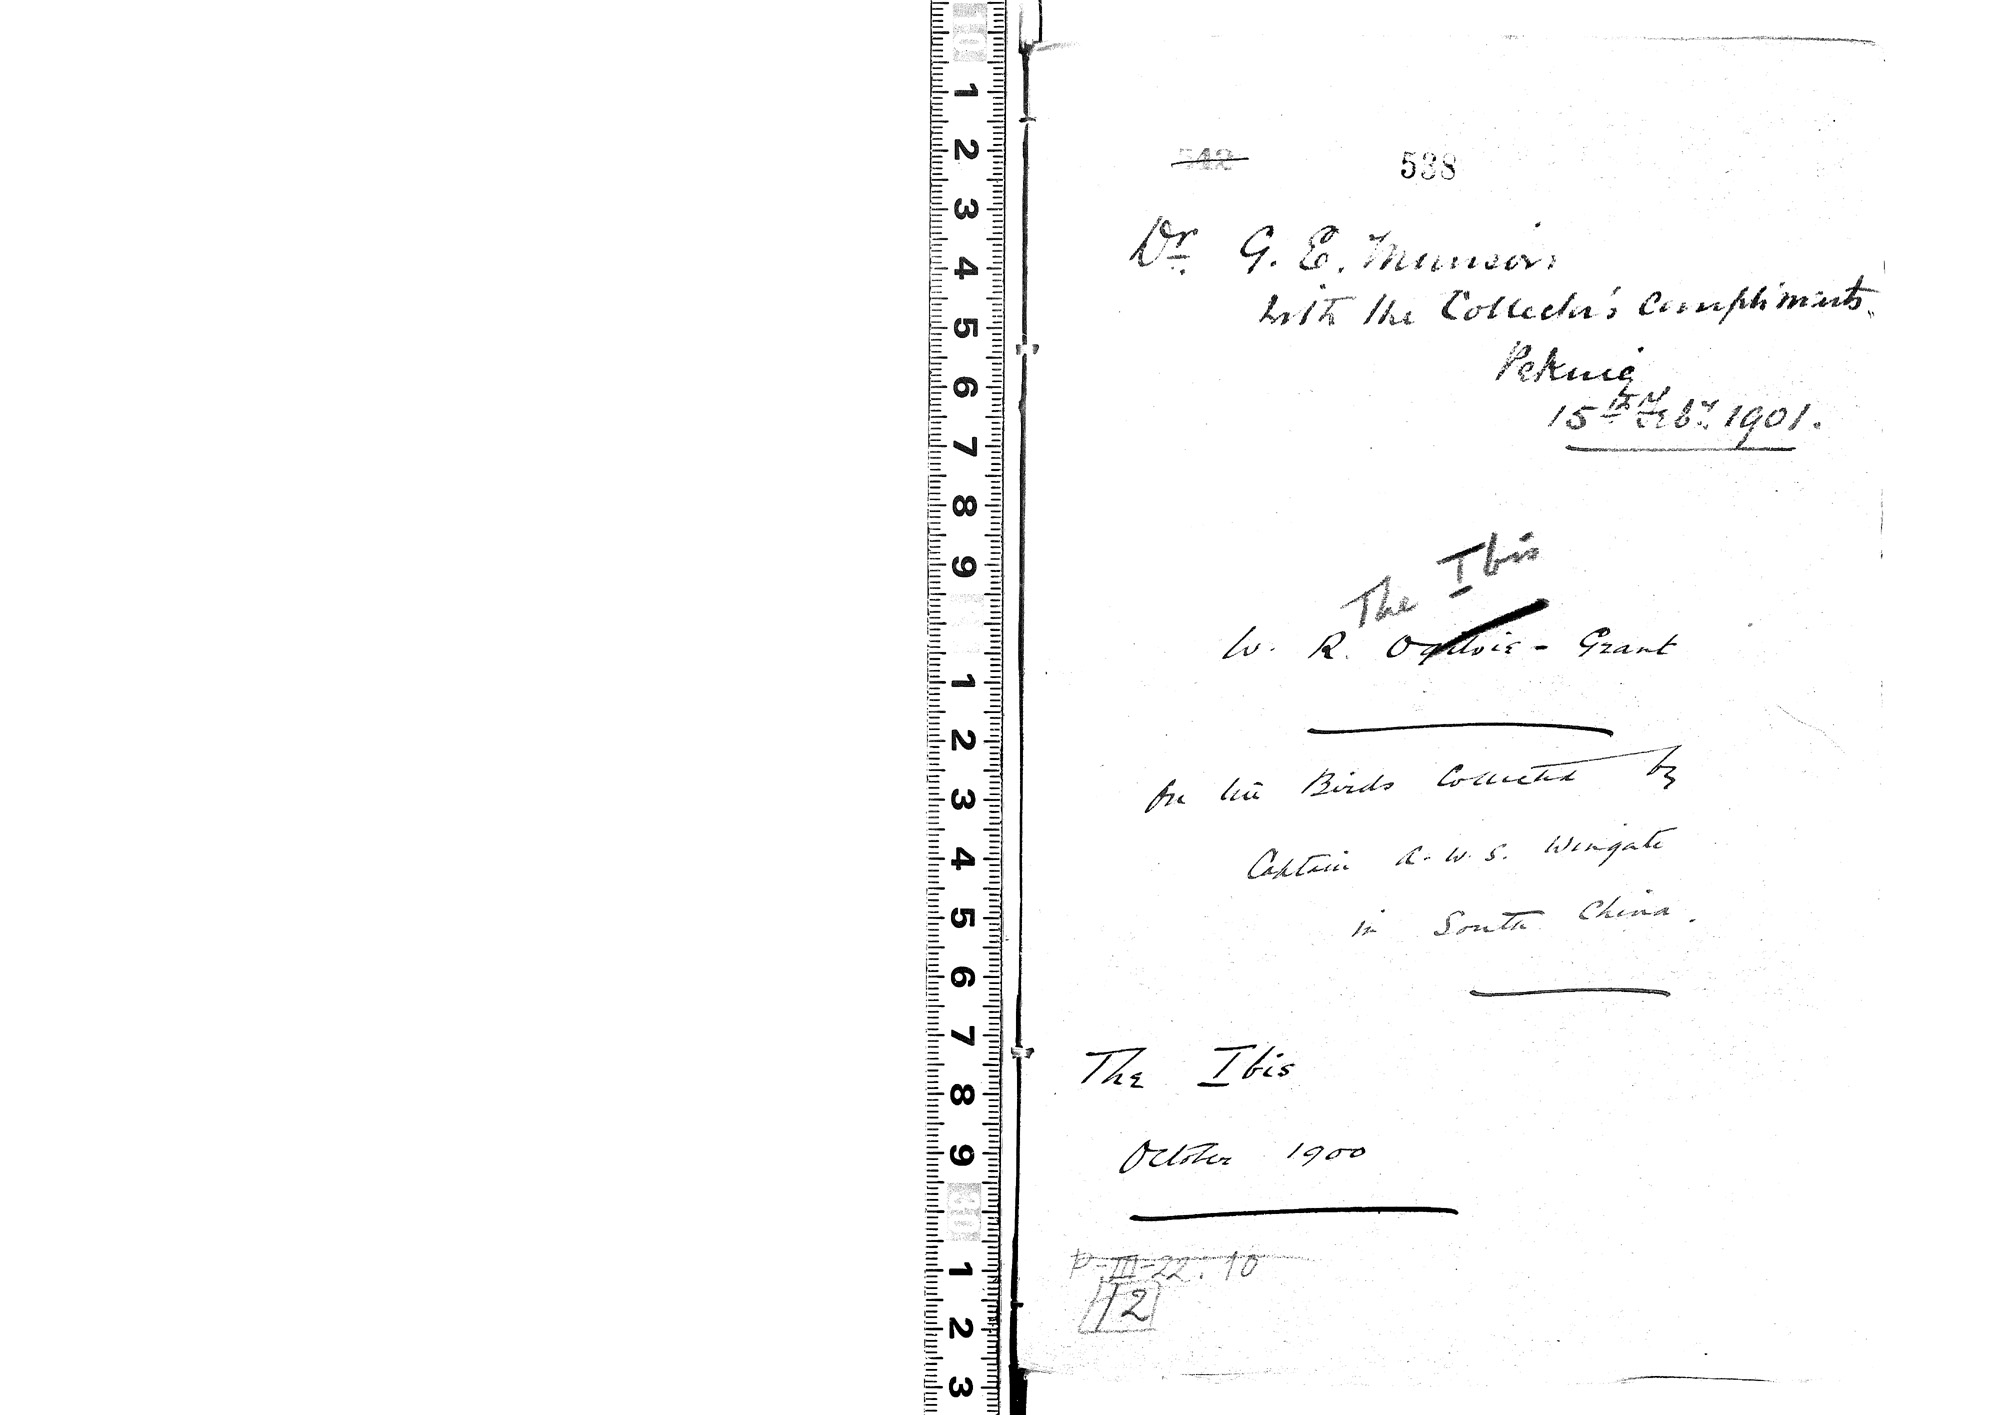 542 538
Dr. G. E. Morrison
with the Collector's Compliments.
Peking
15th Feby. 1901.
The Ibis
W. R. Ogilvie-Grant
On the Birds Collected by
Captain A. W. S. Wingate
in South China.
The Ibis
October 1900
P-III-22:10
12
10
1
2
3
4
5
6
7
8
9
1
2
3
4
5
6
7
8
9
30
1
2
3